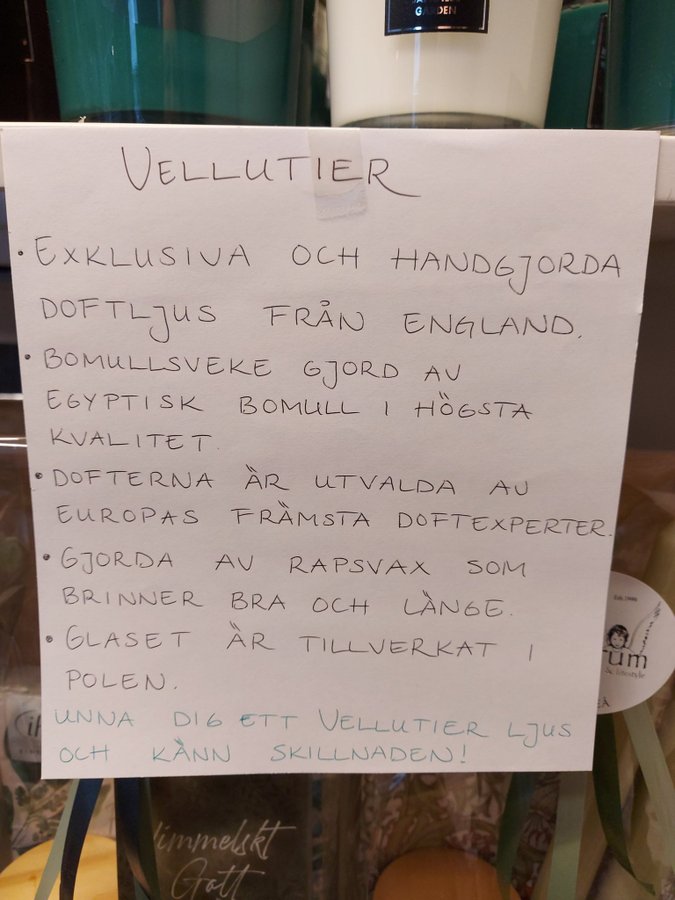 GARDEN
VELLUTIER
• EXKLUSIVA OCH HANDGJORDA
DOFTLJUS FRÅN ENGLAND.
• BOMULLSVEKE GJORD AV
EGYPTISK BOMULL I HÖGSTA
KVALITET.
• DOFTERNA ÄR UTVALDA AV
EUROPAS FRÄMSTA DOFTEXPERTER.
• GJORDA AV RAPSVAX SOM
BRINNER BRA OCH LÄNGE.
• GLASET ÄR TILLVERKAT I
POLEN.
UNNA DIG ETT VELLUTIER LJUS
OCH KÄNN SKILLNADEN!
rum
& lifestyle
Himmelskt
Gott